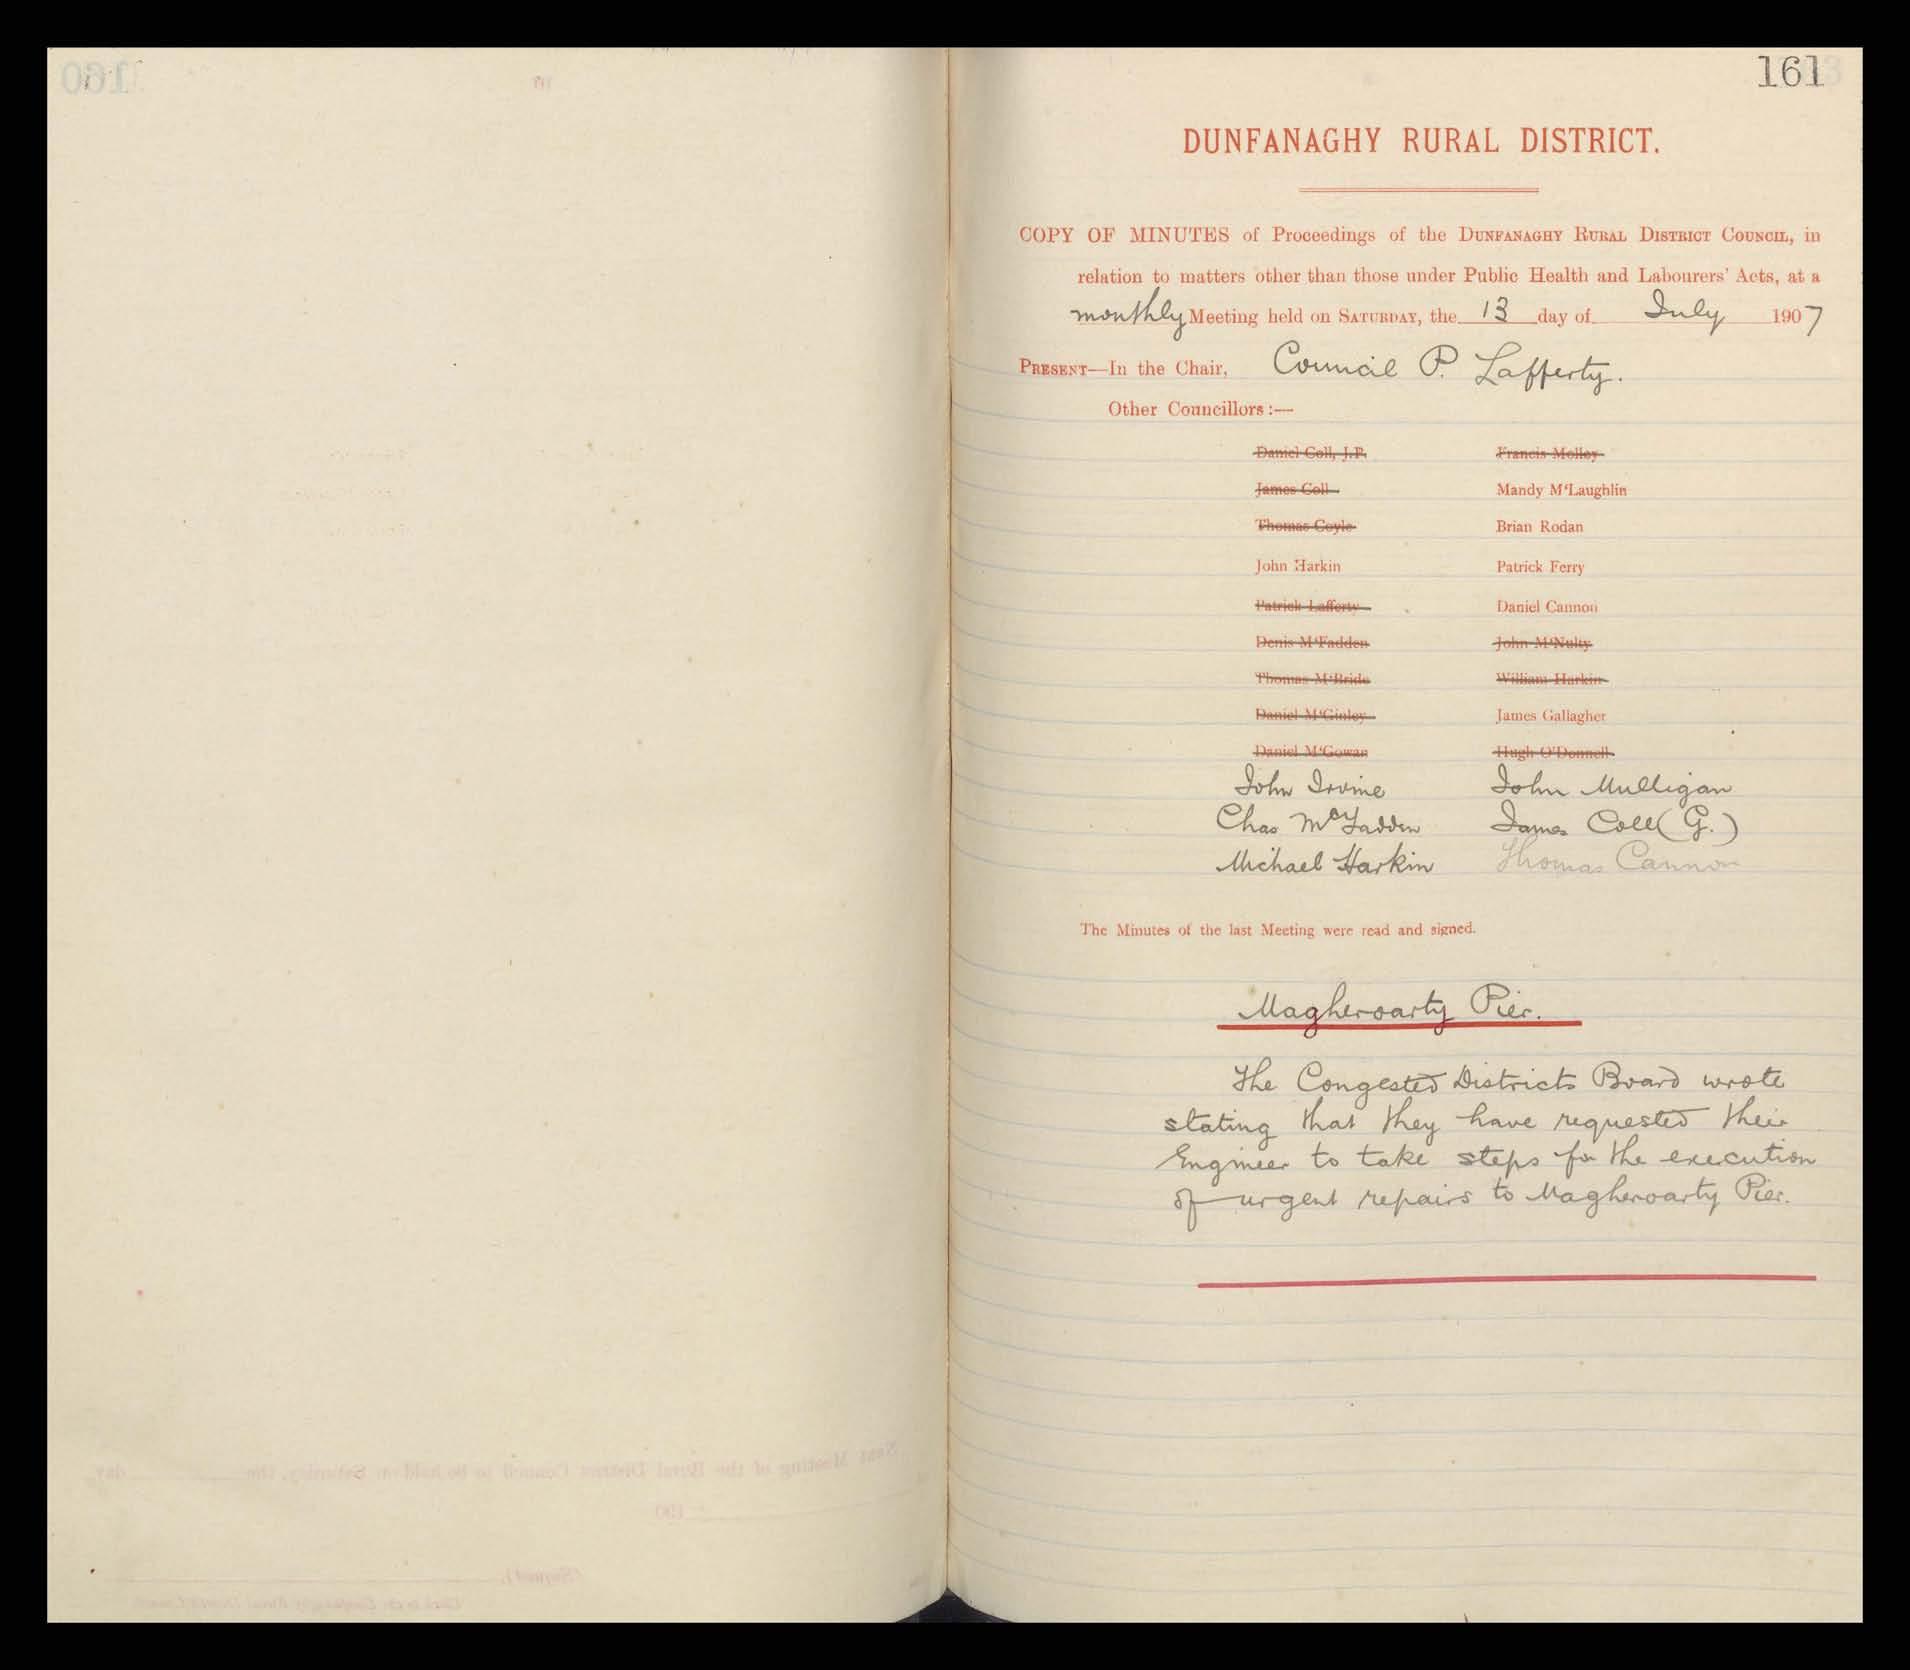 160
161
DUNFANAGHY RURAL DISTRICT.
COPY OF MINUTES of Proceedings of the DUNFANAGHY RURAL DISTRICT COUNCIL, in
relation to matters other than those under Public Health and Labourers' Acts, at a
monthly Meeting held on SATURDAY, the 13 day of July 1907
PRESENT—In the Chair, Council P. Lafferty.
Other Councillors:—
Daniel Coll, J.P. Francis Molloy
James Coll Mandy M'Laughlin
Thomas Coyle Brian Rodan
John Harkin Patrick Ferry
Patrick Lafferty Daniel Cannon
Denis M'Fadden John M'Nulty
Thomas M'Bride William Harkin
Daniel M'Ginley James Gallagher
Daniel M'Gowan Hugh O'Donnell
John Irvine John Mulligan
Chas McFadden James Coll (G.)
Michael Harkin Thomas Cannon
The Minutes of the last Meeting were read and signed.
Magheroarty Pier.
The Congested Districts Board wrote
stating that they have requested their
Engineer to take steps for the execution
of urgent repairs to Magheroarty Pier.
Next Meeting of the Rural District Council to be held on Saturday, the day
190
(Signed),